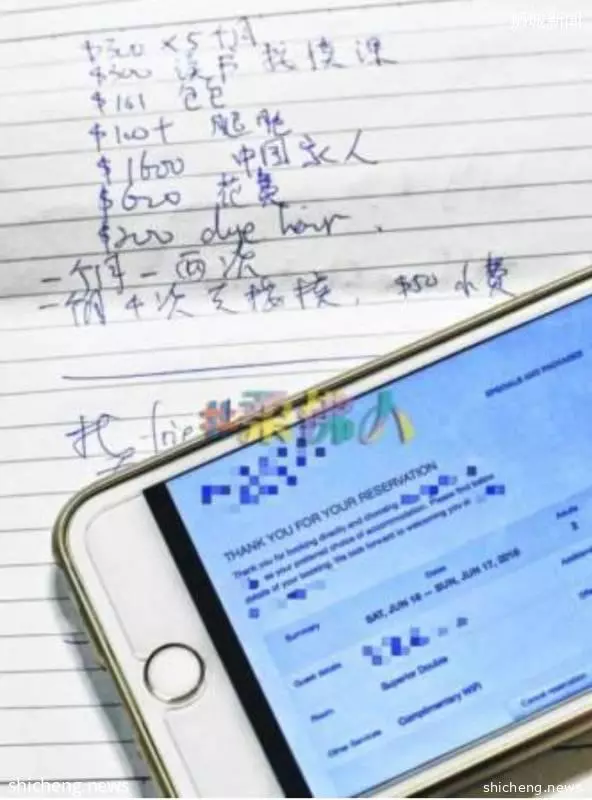 $300 × 5个月
$300 读书 按摩课
$161 包包
$100+ 肥肥
$1600 中国家人
$600 花费
$200 dye hair.
一个月一两次
一个月4次 按摩, $50 小费
找 frie
SPECIALS AND PACKAGES
THANK YOU FOR YOUR RESERVATION
Thank you for booking directly and choosing
as your preferred choice of accommodation. Please find below
details of your booking. We look forward to welcoming you at
Dates
Adults
Summary
SAT, JUN 16 – SUN, JUN 17, 2018
2
Additional
Guest details
Room
Superior Double
Other Services
Complimentary WiFi
Cancel reservation
shicheng.news
shicheng.news